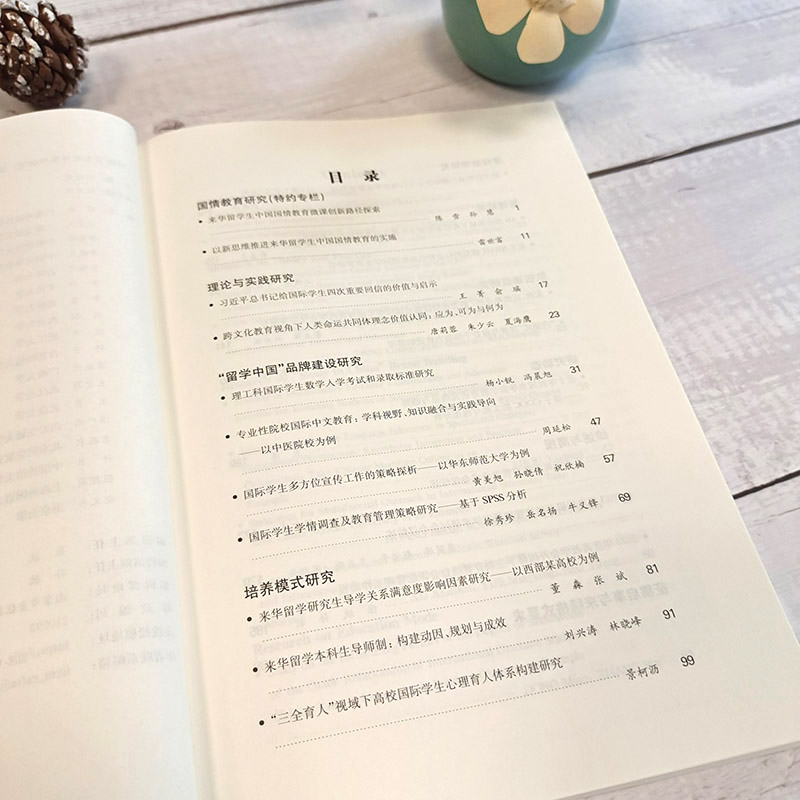 目 录
国情教育研究(特约专栏)
• 来华留学生中国国情教育微课创新路径探索
陈 雪 孙 慧 1
• 以新思维推进来华留学生中国国情教育的实施
雷世富 11
理论与实践研究
• 习近平总书记给国际学生四次重要回信的价值与启示
王 菁 俞 瑶 17
• 跨文化教育视角下人类命运共同体理念价值认同:应为、可为与何为
唐莉蓉 朱少云 夏海鹰 23
“留学中国”品牌建设研究
• 理工科国际学生数学入学考试和录取标准研究
杨小锐 冯晨旭 31
• 专业性院校国际中文教育:学科视野、知识融合与实践导向
——以中医院校为例
周延松 47
• 国际学生多方位宣传工作的策略探析——以华东师范大学为例
黄美旭 孙晓倩 祝欣楠 57
• 国际学生学情调查及教育管理策略研究——基于 SPSS 分析
徐秀珍 岳名扬 牛义锋 69
培养模式研究
• 来华留学研究生导学关系满意度影响因素研究——以西部某高校为例
董 淼 张 斌 81
• 来华留学本科生导师制:构建动因、规划与成效
刘兴涛 林晓峰 91
• “三全育人”视域下高校国际学生心理育人体系构建研究
景柯沥 99